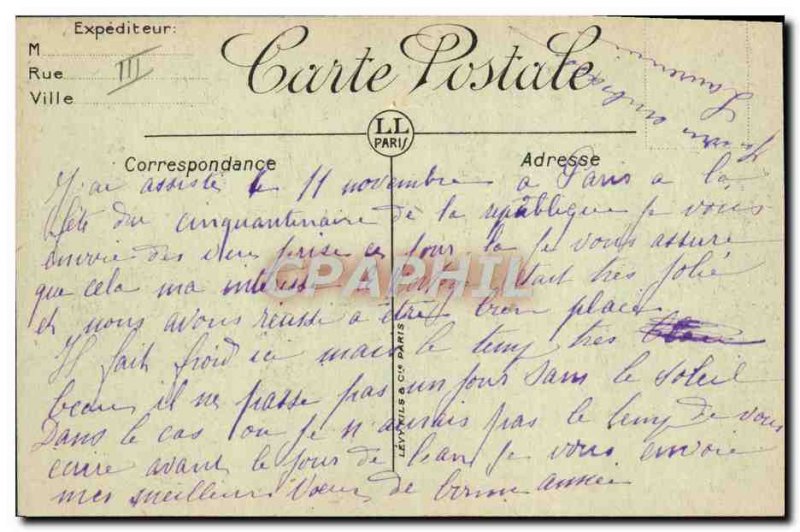 Expéditeur:
M
Rue
Ville
III
Carte Postale
LL
PARIS
Correspondance
Adresse
J'ai assisté le 11 novembre a Paris a la
fete du cinquantenaire de la republique je vous
envoie des vues prise ce jour la je vous assure
que cela ma c'etait tres jolie
et nous avons réussie a être bien placé
Il fait froid ici mais le temp tres
beau il ne passe pas un jour sans le soleil
Dans le cas ou je n'aurais pas le temp de vous
ecrire avant le jour de l'an je vous envoie
mes meilleurs voeux de bonne année
CPAPHIL
LÉVY FILS & Cie PARIS